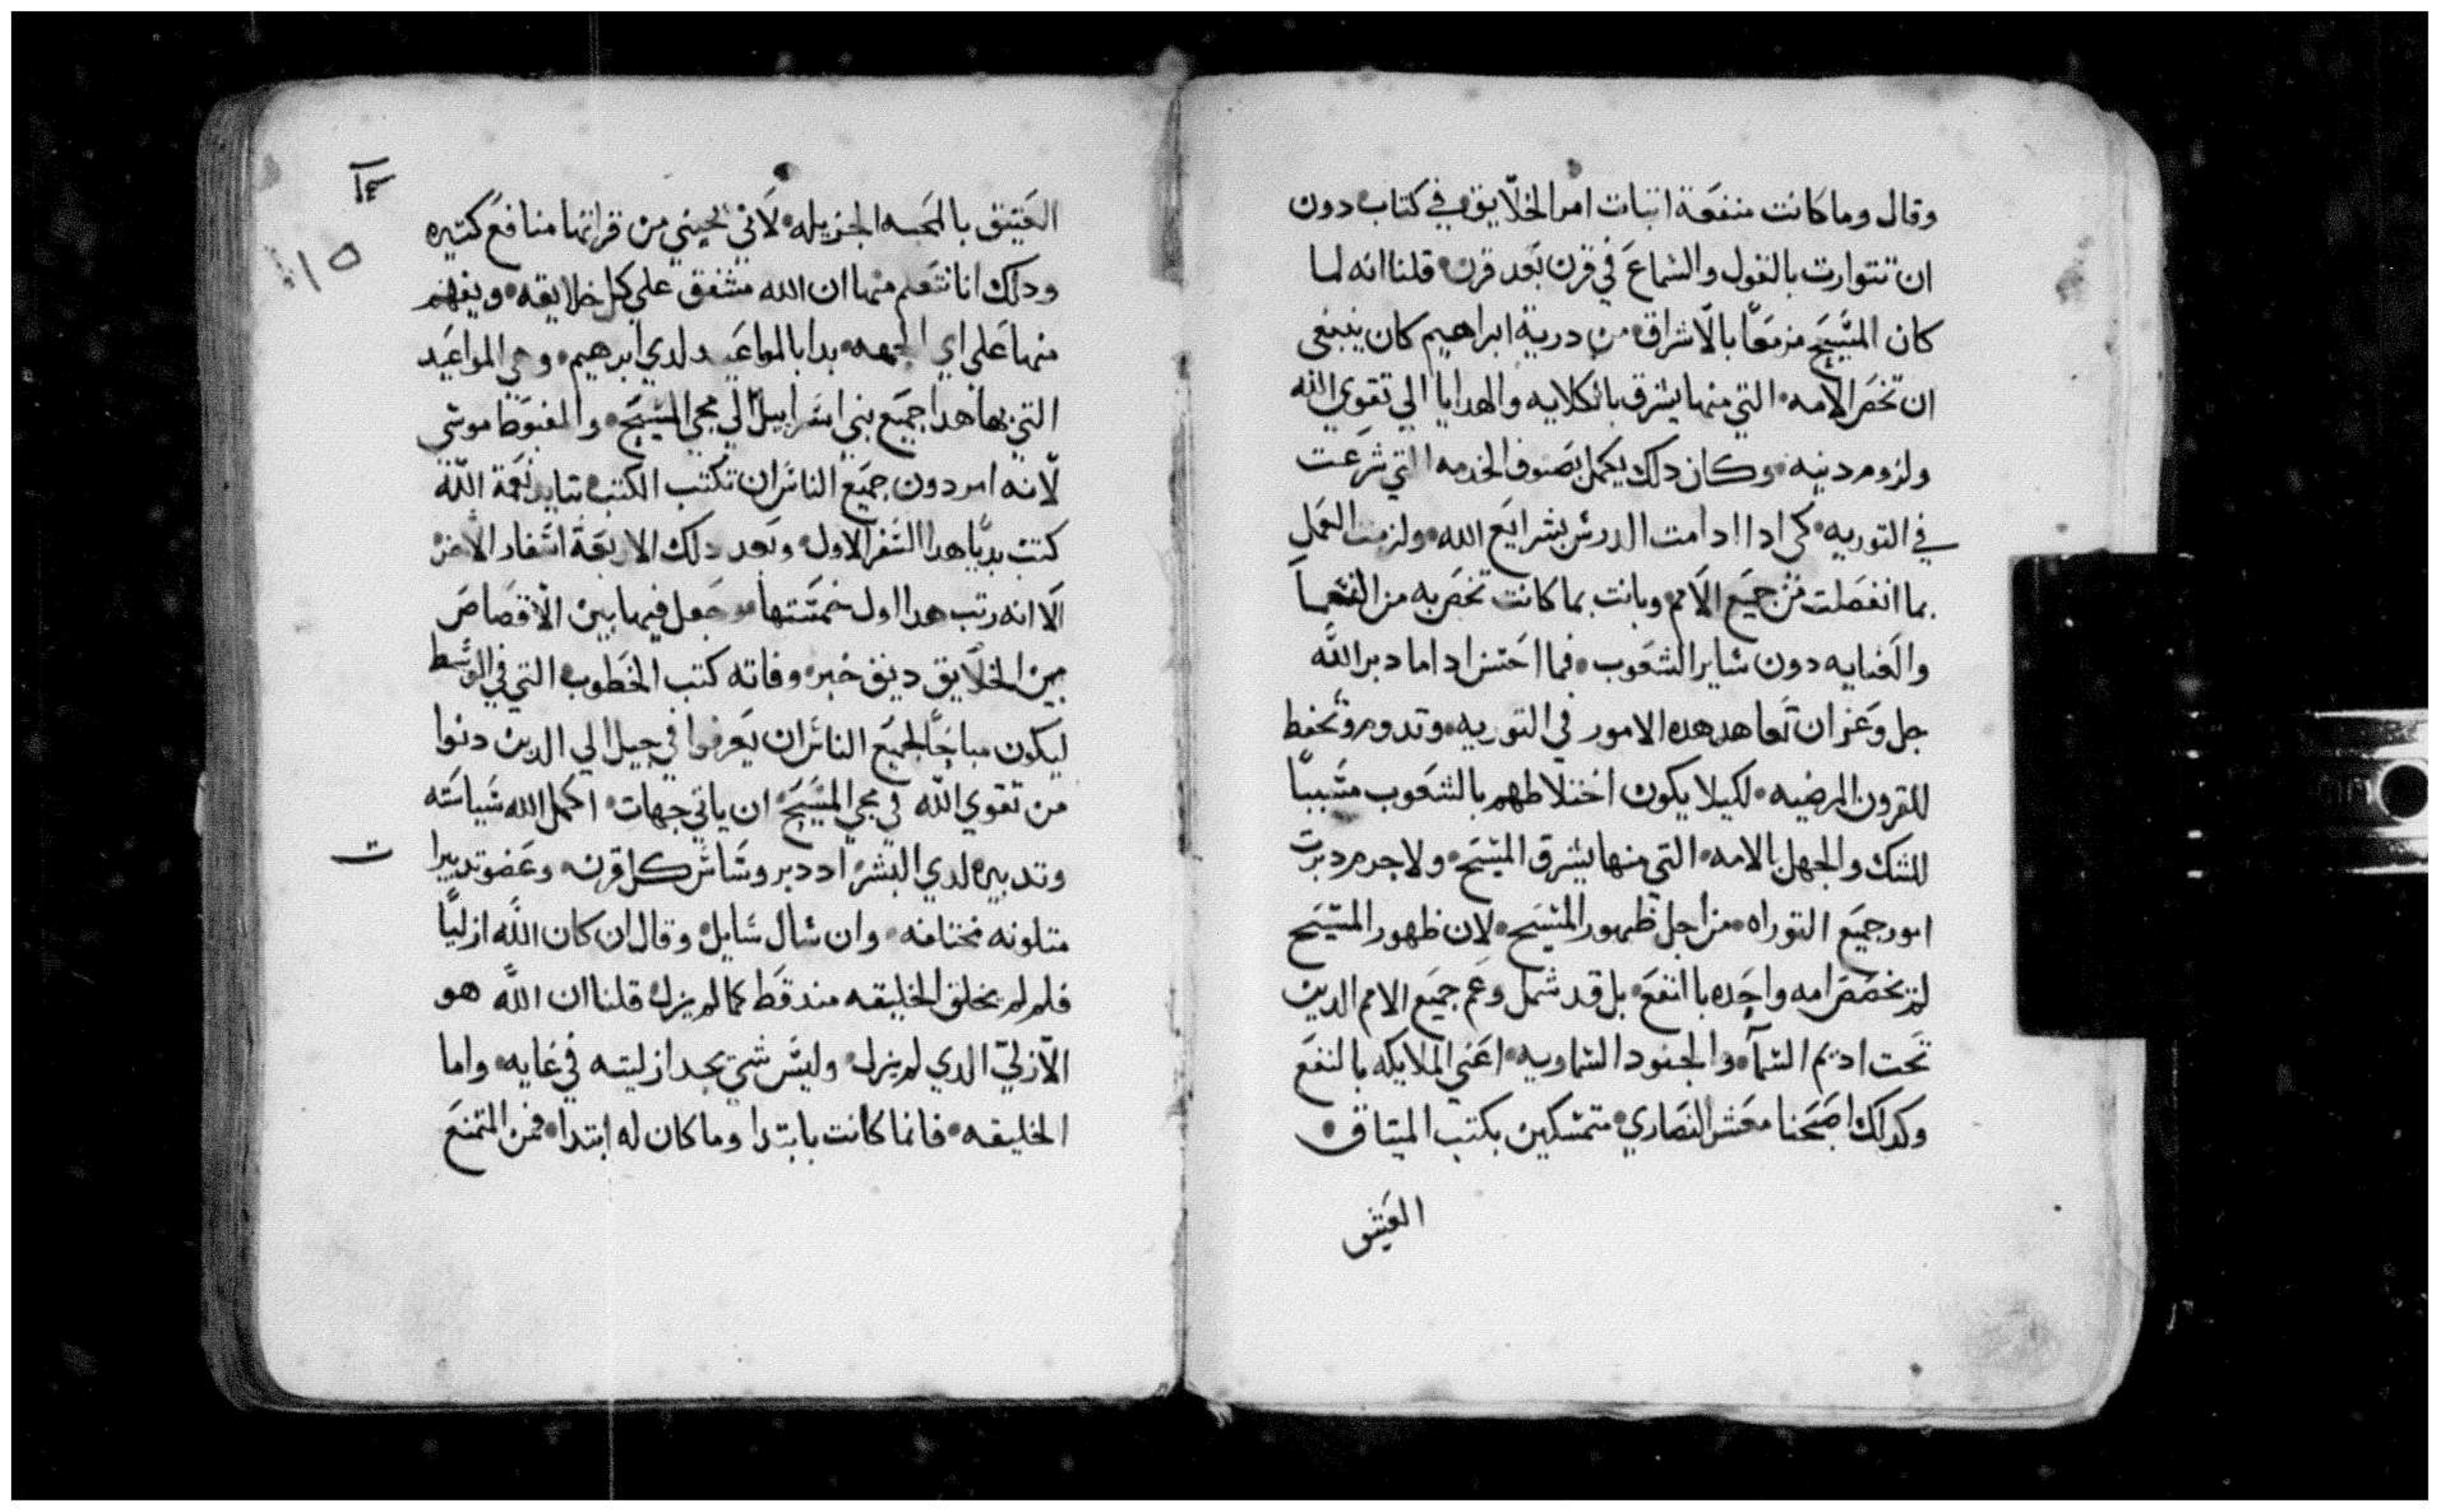 وقال وما كانت منفعة اتبات امر الخلايق في كتاب دون
ان تتوارت بالقول والسماع في قرن بعد قرن قلنا انه لما
كان المسيح مزمعًا بالاشراق من درية ابراهيم كان ينبغي
ان تخص الامه التي منها يشرق بالكلايه والهدايا الي تقوي الله
ولزوم دينه وكان دلك يكمل بصنوف الخدمه التي شرعت
في التوريه كي ادا ادامت الدرس بشرايع الله ولزمت العمل
بما انفصلت من جميع الامم وبانت بما كانت تخص به من النعما
والعنايه دون ساير الشعوب فما احسن اد اما دبر الله
جل وعز ان تعاهد هده الامور في التوريه وتدوم وتحفظ
للقرون المرضيه لكيلا يكون اختلاطهم بالشعوب مسببًا
للشك والجهل بالامه التي منها يشرق المسيح ولا جرم دبرت
امور جميع التوراه من اجل ظهور المسيح لان ظهور المسيح
لم يخصص امه واحده باالنفع بل قد شمل وعم جميع الامم الدين
تحت اديم السمآ والجنود السماويه اعني الملايكه بالنفع
وكدلك اصبحنا معشر النصاري متمسكين بكتب الميتاق
العتيق
العتيق بالمحبه الجزيله لاني نجيني من قراتها منافع كتيره
ودلك انا نتعلم منها ان الله مشفق علي كل خلايقه ويفهم
منها علي اي الجهه بدا بالمواعيد لدي ابرهيم وهي المواعيد
التي بها هدا جميع بني اسراييل الي مجي المسيح والمغبوط موسي
لانه امر دون جميع الناس ان تكتب الكتب بتاييد نعمة الله
كتب بديًا هدا السفر الاول وبعد دلك الاربعة اسفار الاخر
الا انه رتب هدا اول خمستها وجعل فيها بين الاقصاص
بين الخلايق دينق خبر وفاته كتب الخطوب التي في الوسط
ليكون مباحًا لجميع الناس ان يعرفوا في جيل الي الدين دنوا
من تقوي الله في مجي المسيح ان ياتي جهات اكمل الله سياسته
وتدبيره لدي البشر اد دبر وساس كل قرن وعضو تدبيرا
متلونه مختلفه وان سال سايل وقال ان كان الله ازليًا
فلم لم يخلق الخليقه مند قط كما لم يزل قلنا ان الله هو
الازلي الدي لم يزل وليس شي يحد ازليته في غايه واما
الخليقه فانما كانت بابتدا وما كان له ابتدا فمن المتمنع